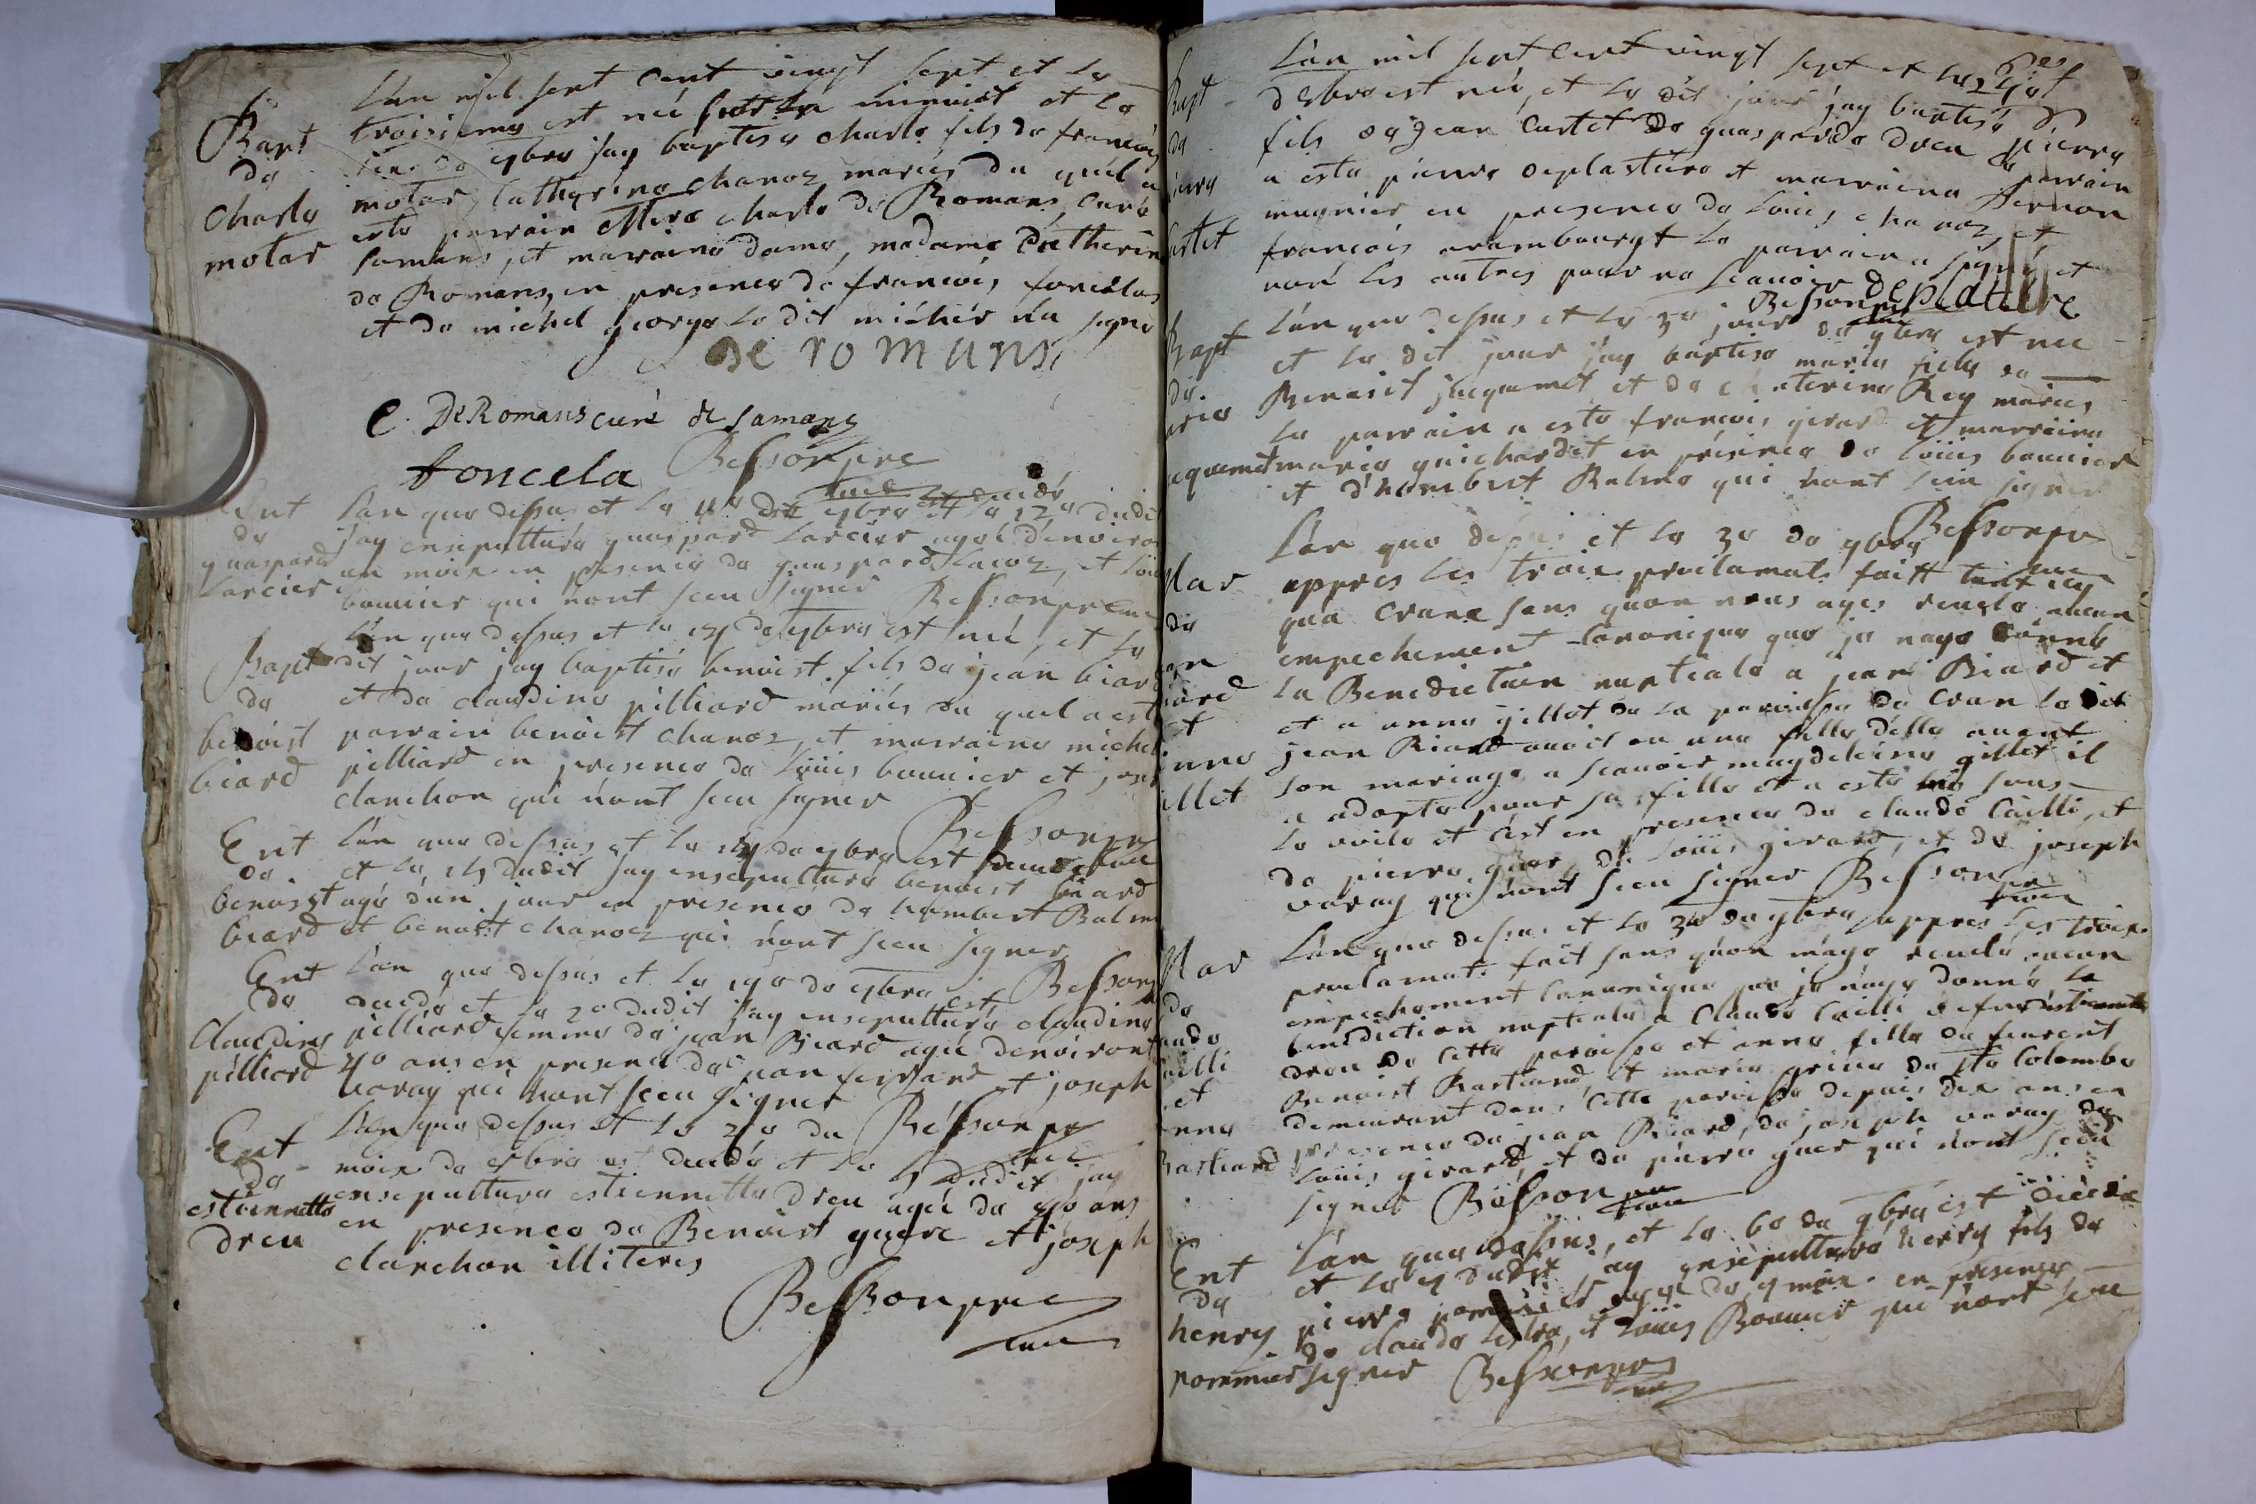 Bapt
de
Charle
motar
L'an mil sept cent vingt sept et le
troisieme est né sur la minuict et le
de 9bre jay baptise charle fils de francois
motar, Catherine Chanoz mariés du quel a
este parrain Mire charle de Romans, Curé
Samans, et marraine dame, madame Catherin
de Romans, en presence de francois foncelas
et de michel george le dit michel na signé
de romans
C. De Romans curé de Samans
foncela Besson pre
curé
Ent
de
guaspard
Larcier
L'an que dessus et le 11e de 9bre est decédé et le 12e dudit
jay ensepulturé guaspard Larcier agé d'environ
un moix en presence de guaspard Lacoz, et Loui
bounier qui n'ont sceu signer Besson pre curé
Bapt
de
benoist
biard
L'an que dessus et le 14 de 9bre est né, et le
dit jour jay baptisé benoist fils de jean biard
et de claudine pilliard mariés du quel a esté
parrain benoist chanoz, et marraine michel
pilliard en presence de Louis bounier et jose
clanchon qui n'ont sceu signer
Besson pre
curé
Ent
de
benoist
biard
L'an que dessus et le 14 de 9bre est decedé
et le 15 dudit jay ensepulturé benoist biard
agé d'un jour en presence de humbert Balme
et benoist chanoz qui n'ont sceu signer
Besson
Ent
de
Claudine
pilliard
L'an que dessus et le 19e de 9bre est
decede et le 20 dudit jay ensepulturé claudine
pilliard femme de jean Biard agée denviront
40 ans en presence de jean ferrard et joseph
varay qui n'ont sceu signer
Besson pre
curé
Ent
de
estiennette
dreu
L'an que dessus et le 2 du
moix de 9bre est decedé et le dudit jay
ensepulturé estiennette dreu agée de 40 ans
en presence de Benoist guere et joseph
clanchon illiteres
Besson pre
curé
Bapt
de
pierre
Curtet
L'an mil sept cent vingt sept et le
d'8bre est né, et le dit jour jay baptisé pierre
fils de Jean Curtet de guasparde dreu le parrain
a esté pierre deplasture et marraine pernon
mugnier en presence de Louis chanoz, et
francois arambourgt le parrain a signé et
non les autres pour ne scauoir
deplature
Besson pre
curé
Bapt
de
marie
jaquemet
L'an que dessus et le 3e jour de 9bre est née
et le dit jour jay baptisé marie fille de
Benoist jaquemet et de Catherine Rey mariés
le parrain a esté francois girard et marraine
marie guichardet en presence de Louis bounier
et d'humbert Balme qui n'ont sceu signer
Besson pre
curé
Mar
de
jean
biard
et
anne
gillet
L'an que dessus et le 3e de 9bre
appres les trois proclamats faitt tant icy
qua Crane sans quon nous ayes reuele aucun
empechement Canonique que je naye donné
la Benediction nuptiale a jean Biard et
et a anne gillet de la paroisse de Cran le dit
jean Biard auoit eu une fille d'elle auant
son mariage a scauoir magdeleine gillet il
a adopte pour sa fille et a esté mis sous
le voile et cest en presence de claude Cailli, et
de pierre guer, de Louis girard, et de joseph
varay qui n'ont sceu signer Besson pre
curé
Mar
de
claude
Cailli
et
anne
Bastiand
L'an que dessus et le 3e de 9bre appres les trois
proclamats fait sans quon m'aye reuelé aucun
empechement Canonique que je n'aye donné, la
benediction nuptiale a Claude Cailli
dreu de cette paroisse et anne fille de feurent
Benoist Bastiand, et marie de ste Colombe
demeurant dans cette paroisse depuis dix ans en
presence de jean Biard, de joseph varay de
Louis girard, et de pierre guer qui n'ont sceu
signer Besson pre
curé
Ent
de
henry
pommier
L'an que dessus, et le 6e de 9bre est decedé
et le 7 dudit jay ensepulturé henry fils de
pierre pommier agé de 9 moix en presence
de claude Lestra, et Louis Bounier qui n'ont sceu
signer Besson pre
curé